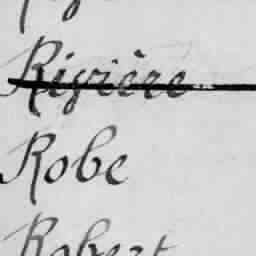 Rivière
Robe
Robert